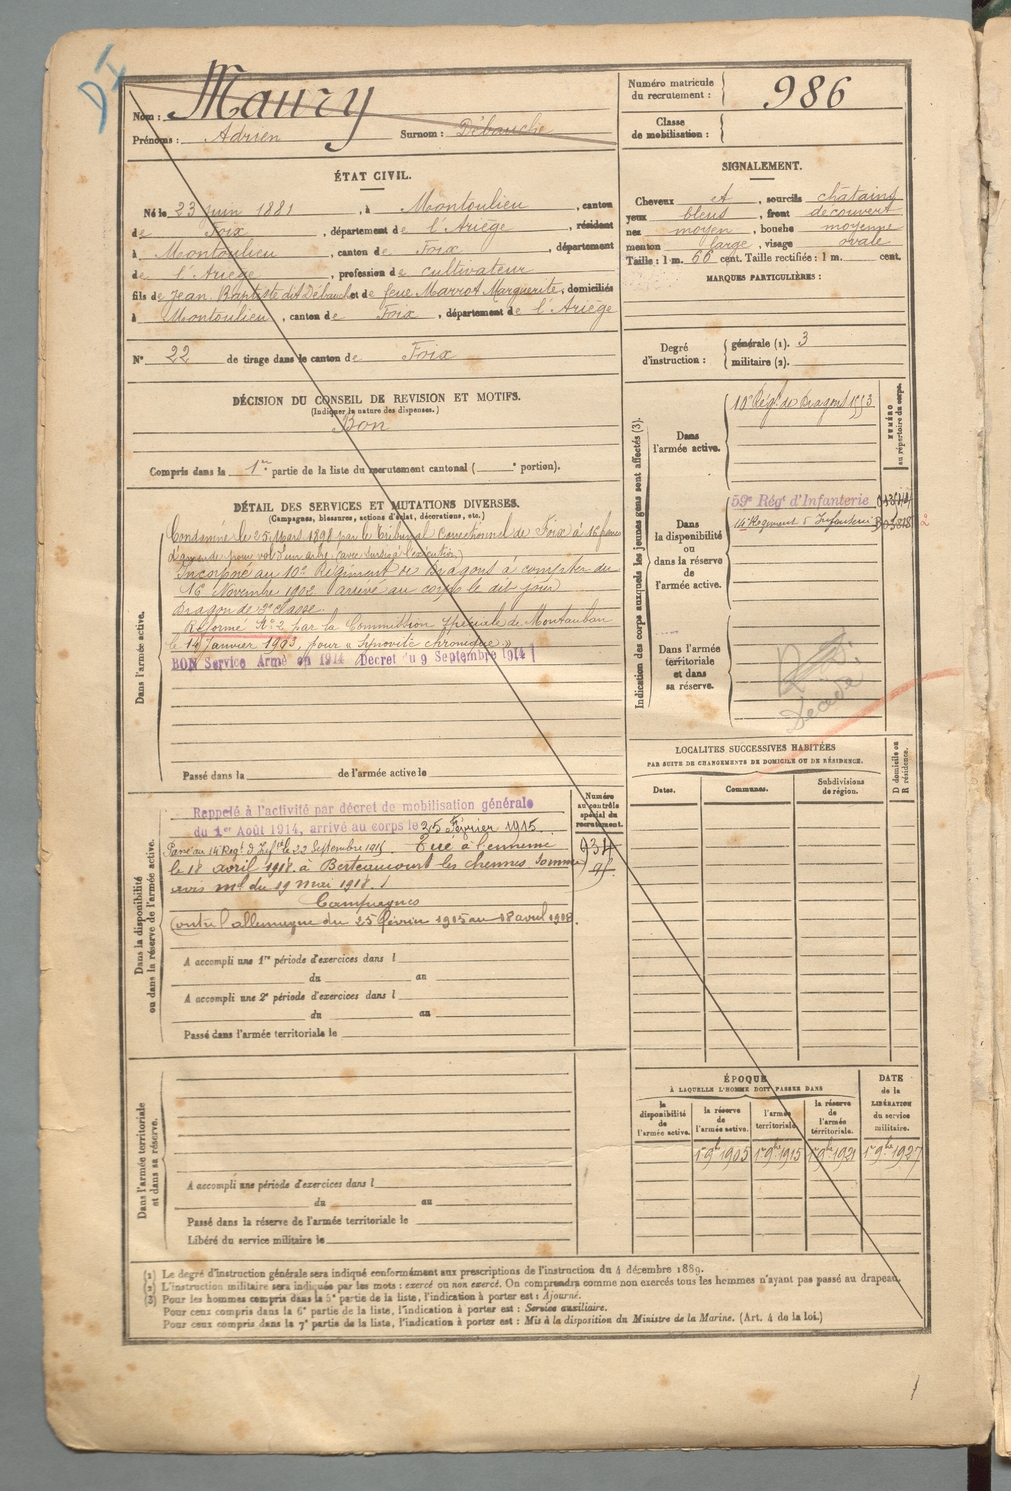 DI
Nom : Maury
Prénoms : Adrien Surnom : Débauche
Numéro matricule du recrutement : 986
Classe de mobilisation :
ÉTAT CIVIL.
Né le 23 juin 1881, à Montoulieu, canton
de Foix, département de l'Ariège, résident
à Montoulieu, canton de Foix, département
de l'Ariège, profession de cultivateur
fils de Jean Baptiste dit Débauche et de feue Marrot Marguerite, domiciliés
à Montoulieu, canton de Foix, département de l'Ariège
N° 22 de tirage dans le canton de Foix
SIGNALEMENT.
Cheveux et, sourcils châtains
yeux bleus, front découvert
nez moyen, bouche moyenne
menton large, visage ovale
Taille : 1 m. 66 cent. Taille rectifiée : 1 m. cent.
MARQUES PARTICULIÈRES :
Degré d'instruction : générale (1). 3
militaire (2).
DÉCISION DU CONSEIL DE REVISION ET MOTIFS.
(Indiquer la nature des dispenses.)
Bon
Compris dans la 1re partie de la liste du recrutement cantonal ( e portion).
DÉTAIL DES SERVICES ET MUTATIONS DIVERSES.
(Campagnes, blessures, actions d'éclat, décorations, etc.)
Dans l'armée active.
Condamné le 25 Mars 1898 par le Tribunal Correctionnel de Foix à 16 francs
d'amende pour vol d'un arbre (avec sursis à l'exécution)
Incorporé au 10e Régiment de Dragons à compter du
16 Novembre 1902 arrivé au corps le dit jour
Dragon de 2e classe.
Réformé N° 2 par la Commission spéciale de Montauban
le 14 Janvier 1903, pour « Synovite chronique »
BON Service Armé en 1914 Décret du 9 Septembre 1914
Passé dans la de l'armée active le
Indication des corps auxquels les jeunes gens sont affectés (3).
NUMÉRO au répertoire du corps.
Dans l'armée active.
10e Régt de Dragons 1553
Dans la disponibilité ou dans la réserve de l'armée active.
59e Régt d'Infanterie
14e Régiment d'Infanterie
Dans l'armée territoriale et dans sa réserve.
LOCALITES SUCCESSIVES HABITÉES
PAR SUITE DE CHANGEMENTS DE DOMICILE OU DE RÉSIDENCE.
Dates. Communes. Subdivisions de région. D domicile ou R résidence.
Dans la disponibilité ou dans la réserve de l'armée active.
Numéro au contrôle spécial du recrutement.
Rappelé à l'activité par décret de mobilisation générale
du 1er Août 1914, arrivé au corps le 25 Février 1915.
Passé au 14e Régt d'Inf. le 22 Septembre 1915. Tué à l'ennemi
le 18 avril 1918 à Berteaucourt les thennes (Somme)
avis ml du 19 mai 1918.
Campagnes
Contre l'allemagne du 25 février 1915 au 18 avril 1918.
934
A accompli une 1re période d'exercices dans l
du au
A accompli une 2e période d'exercices dans l
du au
Passé dans l'armée territoriale le
Dans l'armée territoriale et dans sa réserve.
A accompli une période d'exercices dans l
du au
Passé dans la réserve de l'armée territoriale le
Libéré du service militaire le
ÉPOQUE
À LAQUELLE L'HOMME DOIT PASSER DANS
DATE de la LIBÉRATION du service militaire.
la disponibilité de l'armée active. la réserve de l'armée active. l'armée territoriale. la réserve de l'armée territoriale.
1er 9bre 1905 1er 9bre 1915 1er 9bre 1921 1er 9bre 1927
(1) Le degré d'instruction générale sera indiqué conformément aux prescriptions de l'instruction du 4 décembre 1889.
(2) L'instruction militaire sera indiquée par les mots : exercé ou non exercé. On comprendra comme non exercés tous les hommes n'ayant pas passé au drapeau.
(3) Pour les hommes compris dans la 5e partie de la liste, l'indication à porter est : Ajourné.
Pour ceux compris dans la 6e partie de la liste, l'indication à porter est : Services auxiliaire.
Pour ceux compris dans la 7e partie de la liste, l'indication à porter est : Mis à la disposition du Ministre de la Marine. (Art. 4 de la loi.)